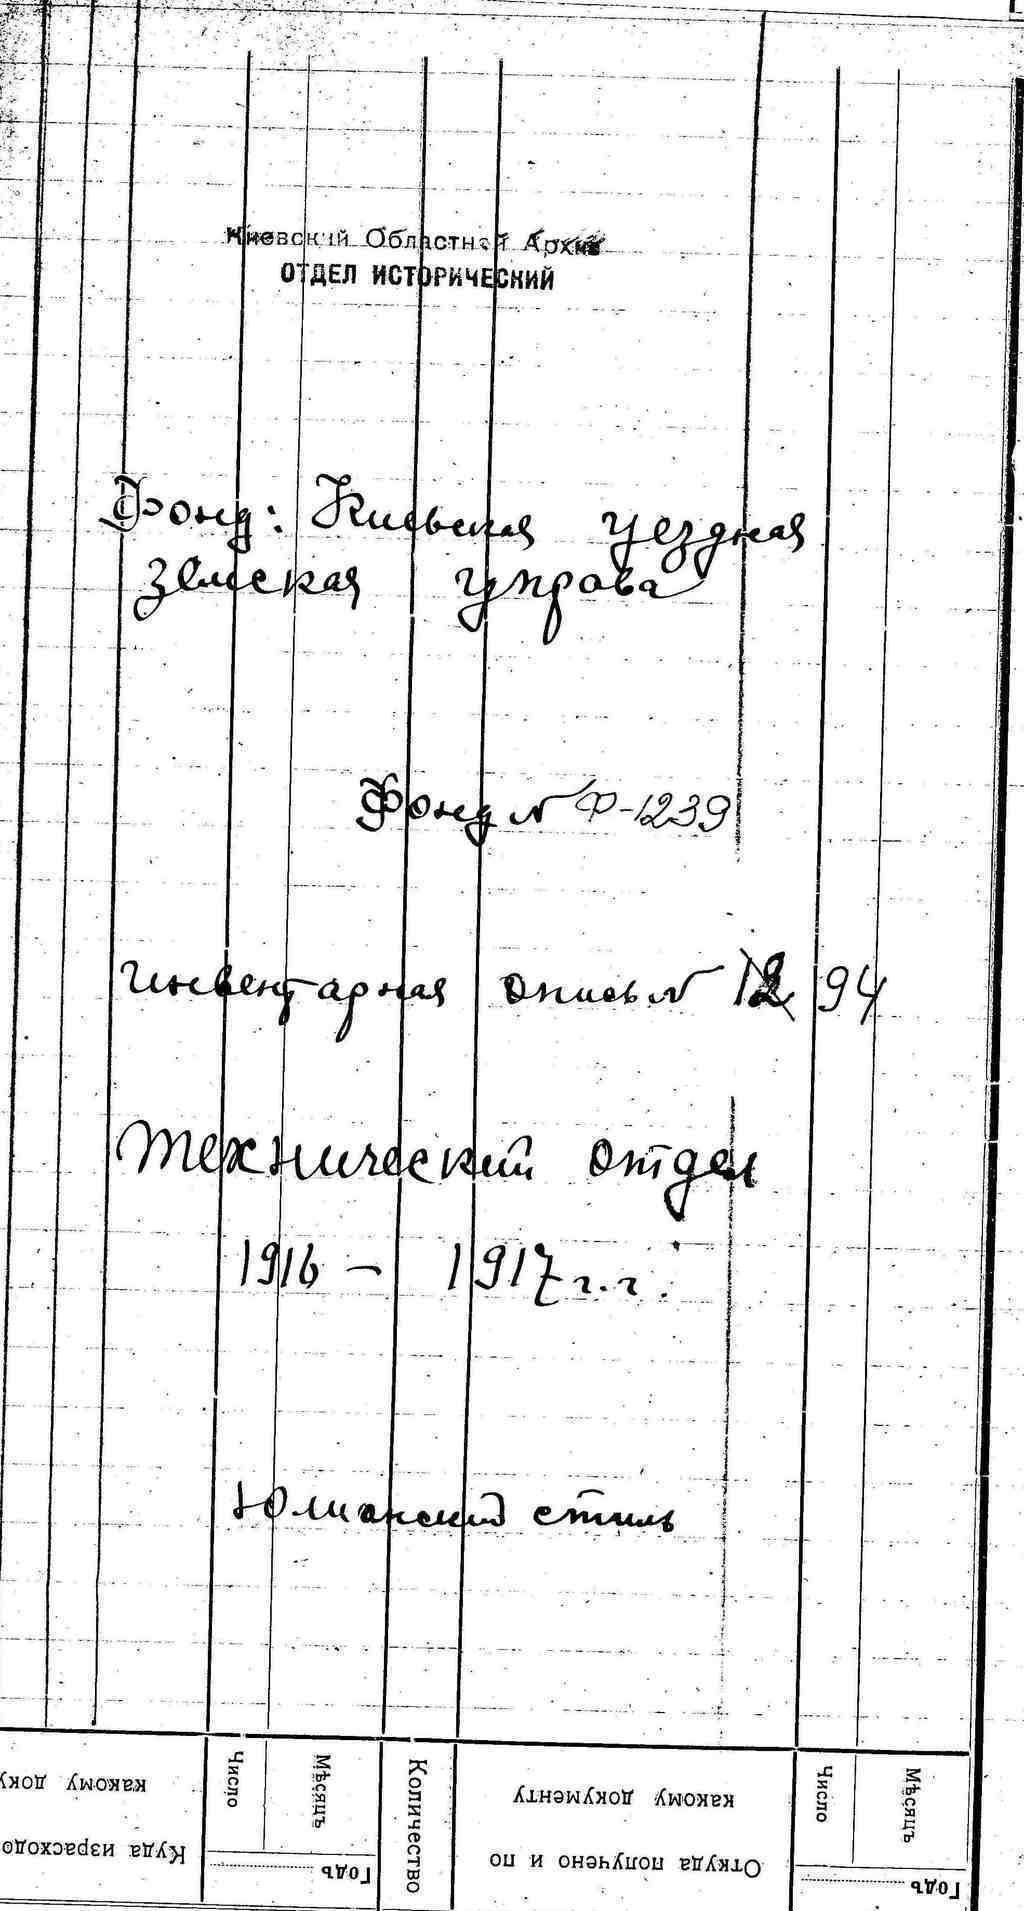 Киевский Областной Архив
ОТДЕЛ ИСТОРИЧЕСКИЙ
Фонд: Киевская уездная
земская управа
Фонд № Ф-1239
Инвентарная опись № 12 94
Технический отдел
1916 – 1917 г.г.
Юлианский стиль
Годъ
Мѣсяцъ
Число
Откуда получено и по
какому документу
Количество
Годъ
Мѣсяцъ
Число
Куда израсходо
какому доку